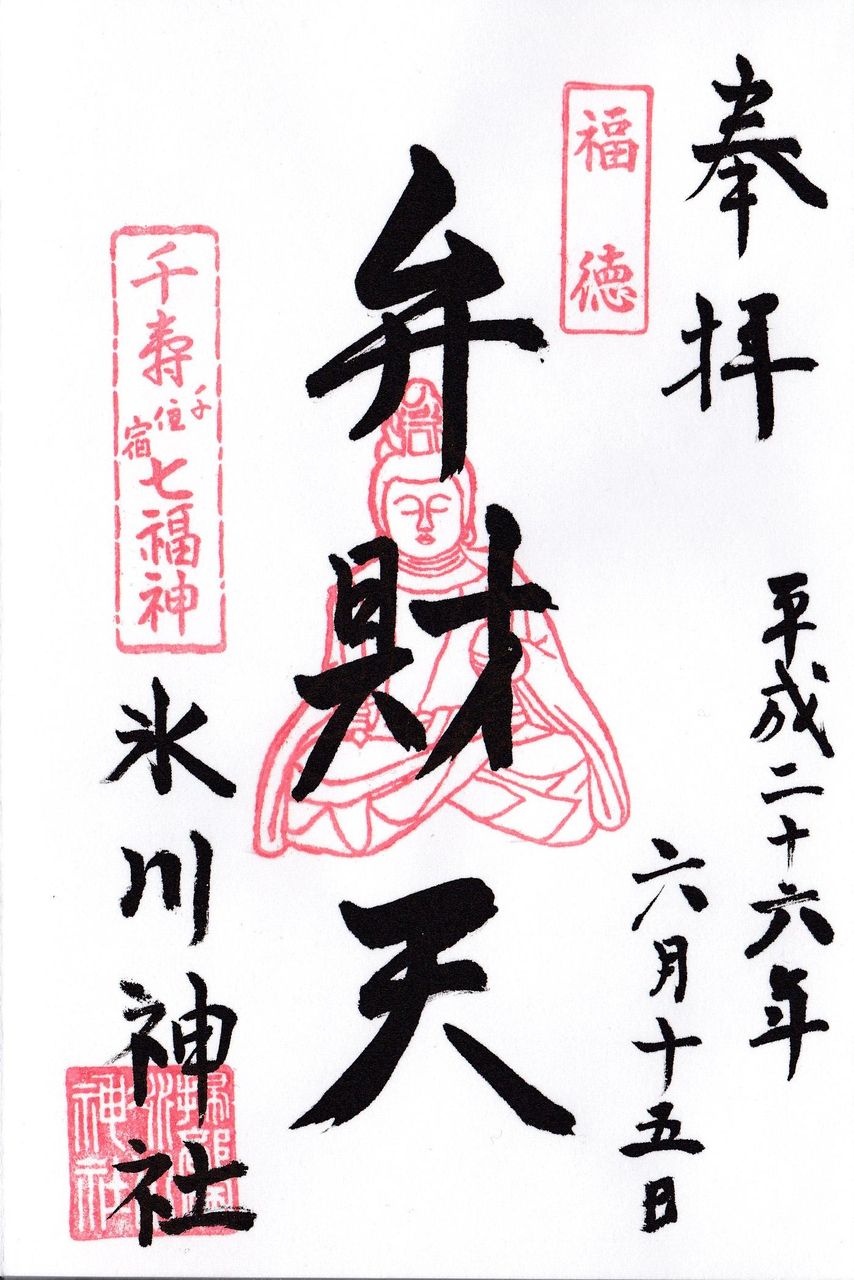 奉拝
平成二十六年
六月十五日
福徳
弁財天
千寿七福神
千住宿
氷川神社